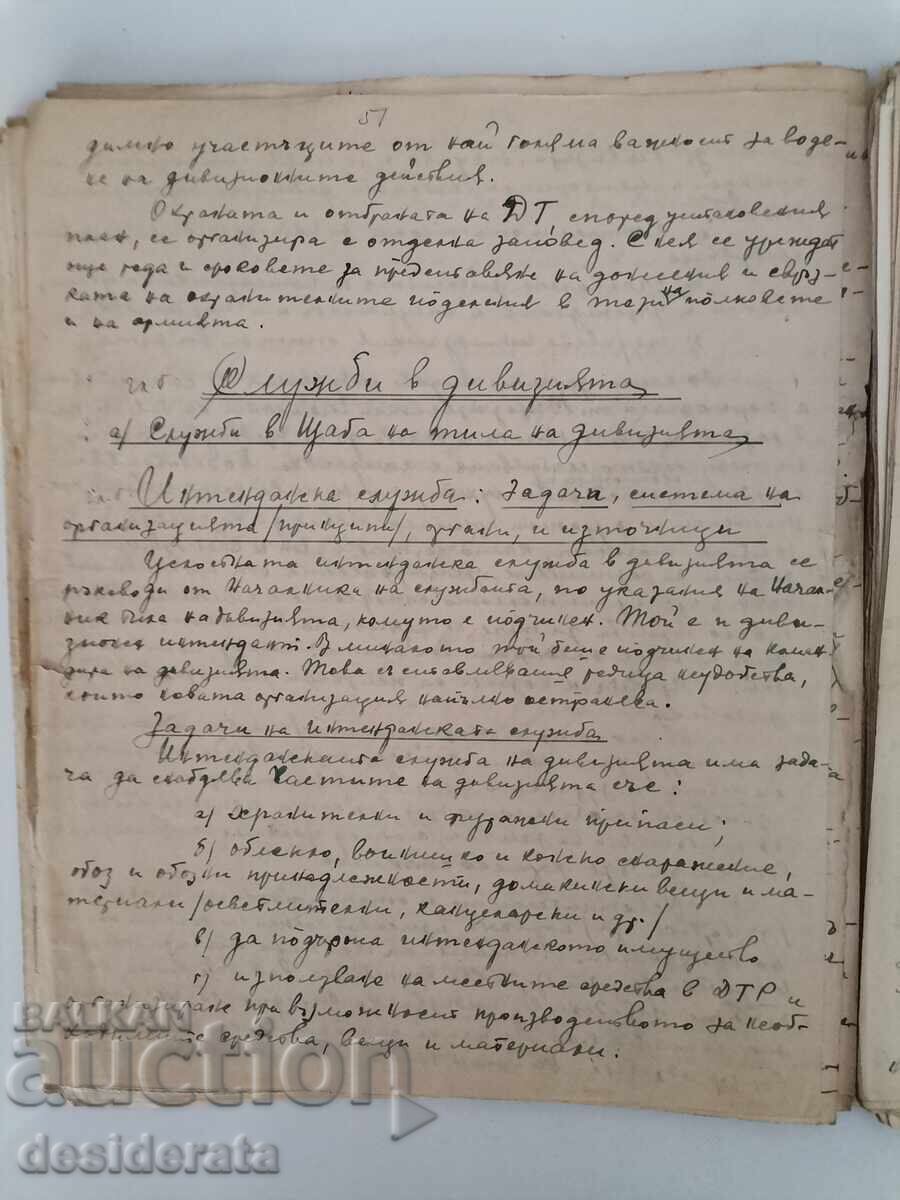 51
димко участъците от най голяма важност за воде-
не на дивизионите действия.
Охраната и отбраната на ДТ, според установения
план, се организира с отделна заповед. С нея се уреждат
още реда и сроковете за представяне на донесения и свръз-
ката на охранителните поделения в тези на полковете
и на армията.
Служби в дивизията
а/ Служби в Щаба на тила на дивизията
Интендантска служба: Задачи, система на
организацията /принципи/, органи, и източници
Цялостната интендантска служба в дивизията се
ръководи от Началника на службата, по указания на Начал-
ник тила на дивизията, комуто е подчинен. Той е и диви-
зионен интендант. В миналото той беше подчинен на коман
дира на дивизията. Това съставляваше редица неудобства,
които новата организация напълно отстранява.
Задачи на интендантската служба
Интендантската служба на дивизията има зада-
ча да снабдява частите на дивизията със:
а/ хранителни и фуражни припаси;
б/ облекло, войнишко и конско снаряжение,
обоз и обозни принадлежности, домакински вещи и ма-
териали /осветлителни, канцеларски и др./
в/ да подържа интендантското имущество
г/ използване на местните средства в ДТР и
при възможност производството за необ-
средства, вещи и материали.
BALKAN
auction
desiderata